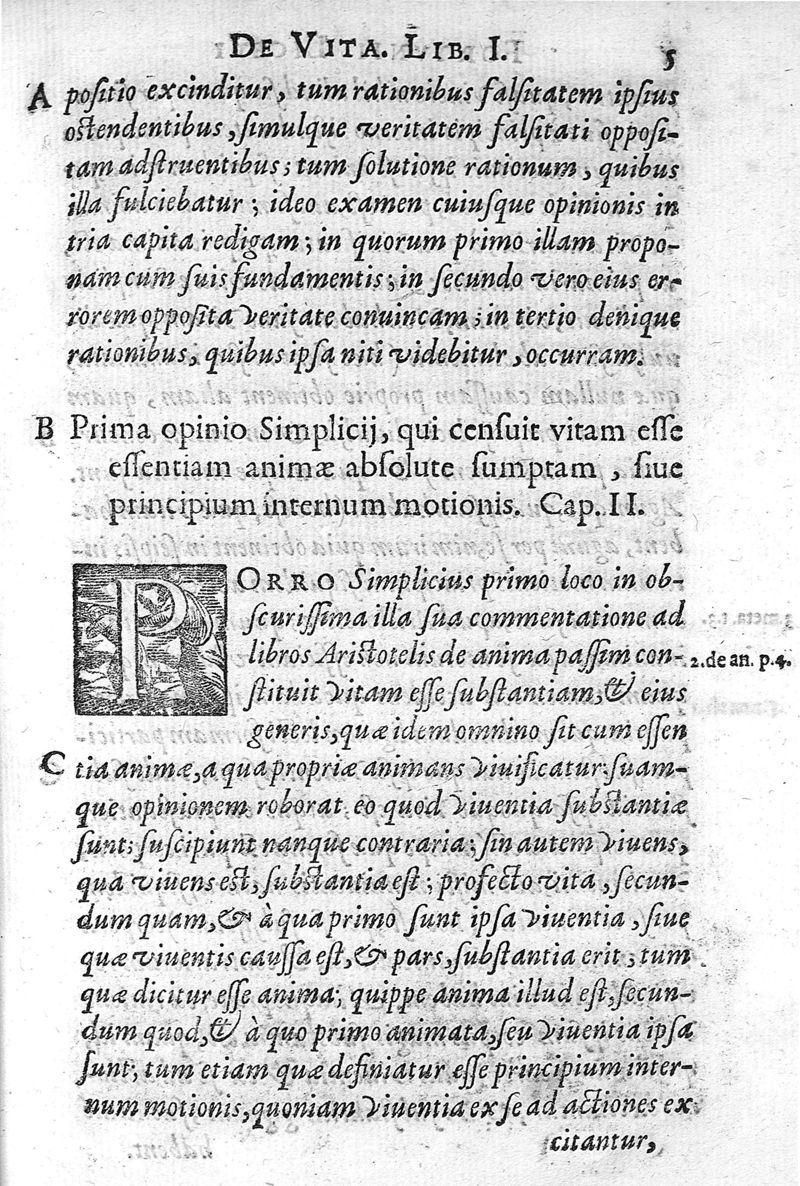 DE VITA. LIB. I. 5
A poſitio excinditur, tum rationibus falſitatem ipſius
oſtendentibus, ſimulque veritatem falſitati oppoſi-
tam adſtruentibus; tum ſolutione rationum, quibus
illa fulciebatur; ideo examen cuiuſque opinionis in
tria capita redigam; in quorum primo illam propo-
nam cum ſuis fundamentis; in ſecundo vero eius er-
rorem oppoſita veritate conuincam; in tertio denique
rationibus, quibus ipſa niti videbitur, occurram.
B Prima opinio Simplicij, qui cenſuit vitam eſſe
eſſentiam animæ abſolute ſumptam, ſiue
principium internum motionis. Cap. II.
PORRO Simplicius primo loco in ob-
ſcuriſſima illa ſua commentatione ad
libros Ariſtotelis de anima paſſim con- 2. de an. p. 4.
ſtituit vitam eſſe ſubſtantiam, & eius
generis, quæ idem omnino ſit cum eſſen
C tia animæ, a qua propriæ animans viuificatur: ſuam-
que opinionem roborat eo quod viuentia ſubſtantiæ
ſunt; ſuſcipiunt nanque contraria; ſin autem viuens,
qua viuens eſt, ſubſtantia eſt; profecto vita, ſecun-
dum quam, & à qua primo ſunt ipſa viuentia, ſiue
quæ viuentis cauſſa eſt, & pars, ſubſtantia erit; tum
quæ dicitur eſſe anima; quippe anima illud eſt, ſecun-
dum quod, & à quo primo animata, ſeu viuentia ipſa
ſunt; tum etiam quæ definiatur eſſe principium inter-
num motionis, quoniam viuentia ex ſe ad actiones ex
citantur,